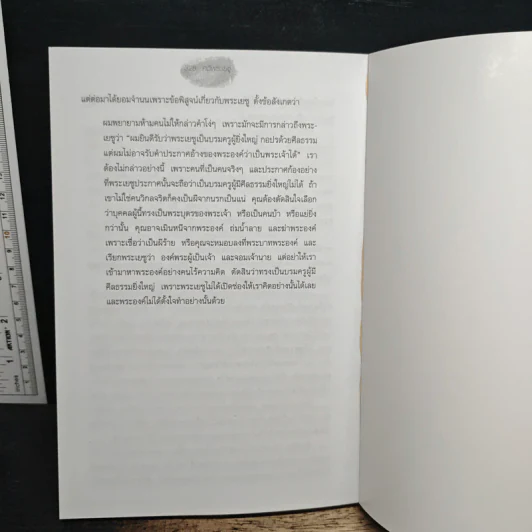 แต่ต่อมาได้ยอมจำนนเพราะข้อพิสูจน์เกี่ยวกับพระเยซู ตั้งข้อสังเกตว่า
ผมพยายามห้ามคนไม่ให้กล่าวคำโง่ๆ เพราะมักจะมีการกล่าวถึงพระ-
เยซูว่า "ผมยินดีรับว่าพระเยซูเป็นบรมครูผู้ยิ่งใหญ่ กอปรด้วยศีลธรรม
แต่ผมไม่อาจรับคำประกาศอ้างของพระองค์ว่าเป็นพระเจ้าได้" เรา
ต้องไม่กล่าวอย่างนี้ เพราะคนที่เป็นคนจริงๆ และประกาศก้องอย่าง
ที่พระเยซูประกาศนั้นจะถือว่าเป็นบรมครูผู้มีศีลธรรมยิ่งใหญ่ไม่ได้ ถ้า
เขาไม่ใช่คนวิกลจริตก็คงเป็นผีจากนรกเป็นแน่ คุณต้องตัดสินใจเลือก
ว่าบุคคลผู้นี้ทรงเป็นพระบุตรของพระเจ้า หรือเป็นคนบ้า หรือแย่ยิ่ง
กว่านั้น คุณอาจเมินหนีจากพระองค์ ถ่มน้ำลาย และฆ่าพระองค์
เพราะเชื่อว่าเป็นผีร้าย หรือคุณจะหมอบลงที่พระบาทพระองค์ และ
เรียกพระเยซูว่า องค์พระผู้เป็นเจ้า และจอมเจ้านาย แต่อย่าให้เรา
เข้ามาหาพระองค์อย่างคนไร้ความคิด ตัดสินว่าทรงเป็นบรมครูผู้มี
ศีลธรรมยิ่งใหญ่ เพราะพระเยซูไม่ได้เปิดช่องให้เราคิดอย่างนั้นได้เลย
และพระองค์ไม่ได้ตั้งใจทำอย่างนั้นด้วย